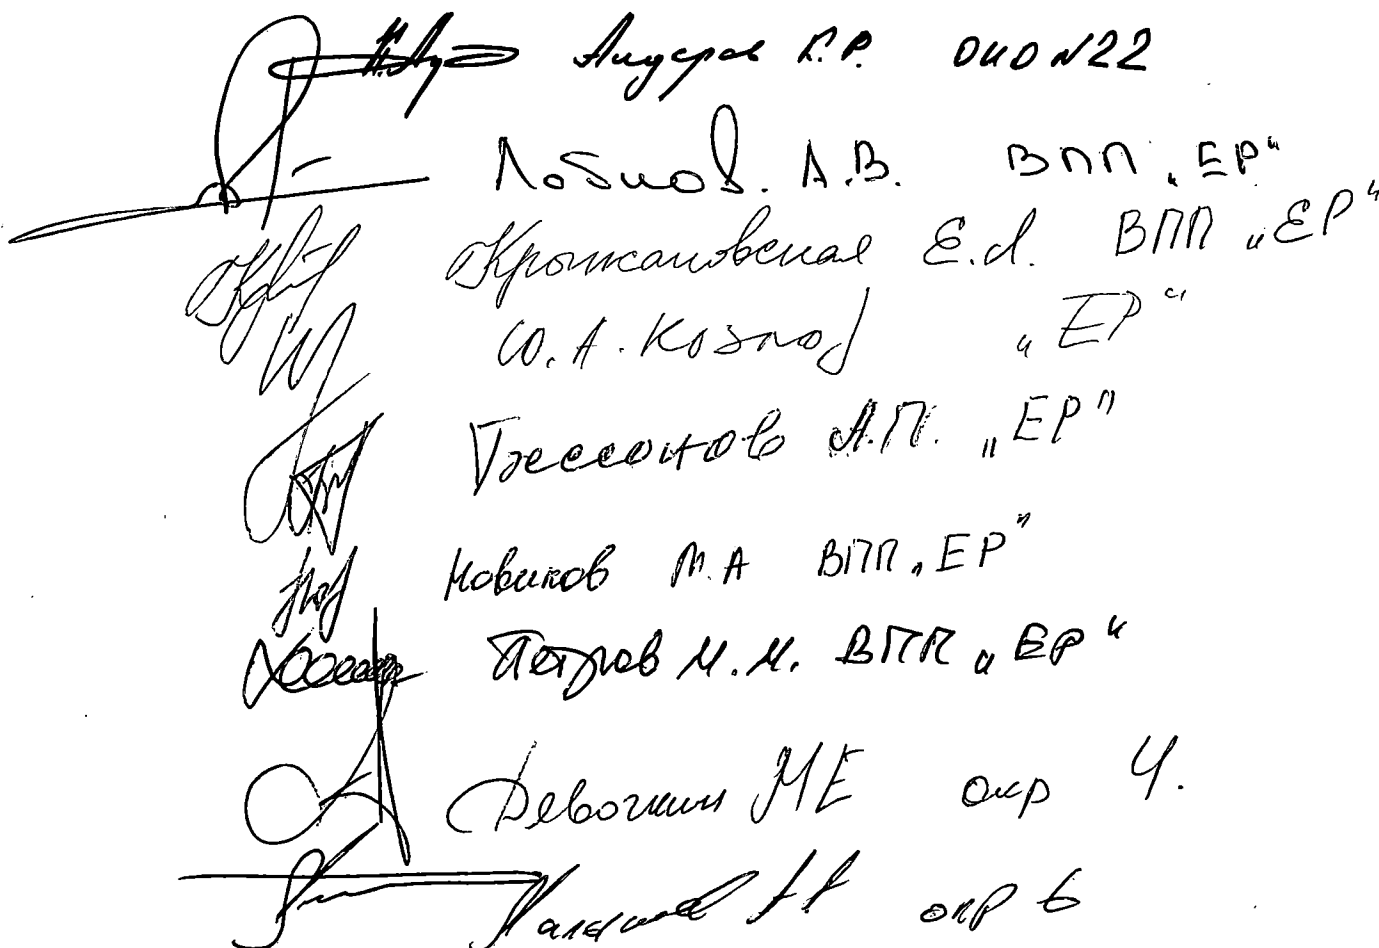 К.Р. ОИО №22
Лобиов. А.В. ВПП „ЕР“
Крыжановская Е.А. ВПП „ЕР“
Ю.А. Козлов „ЕР“
Бессонов А.П. „ЕР"
Новиков М.А ВПП „ЕР"
Петров М.М. ВПП „ЕР“
Девочкин МЕ окр 4.
окр 6